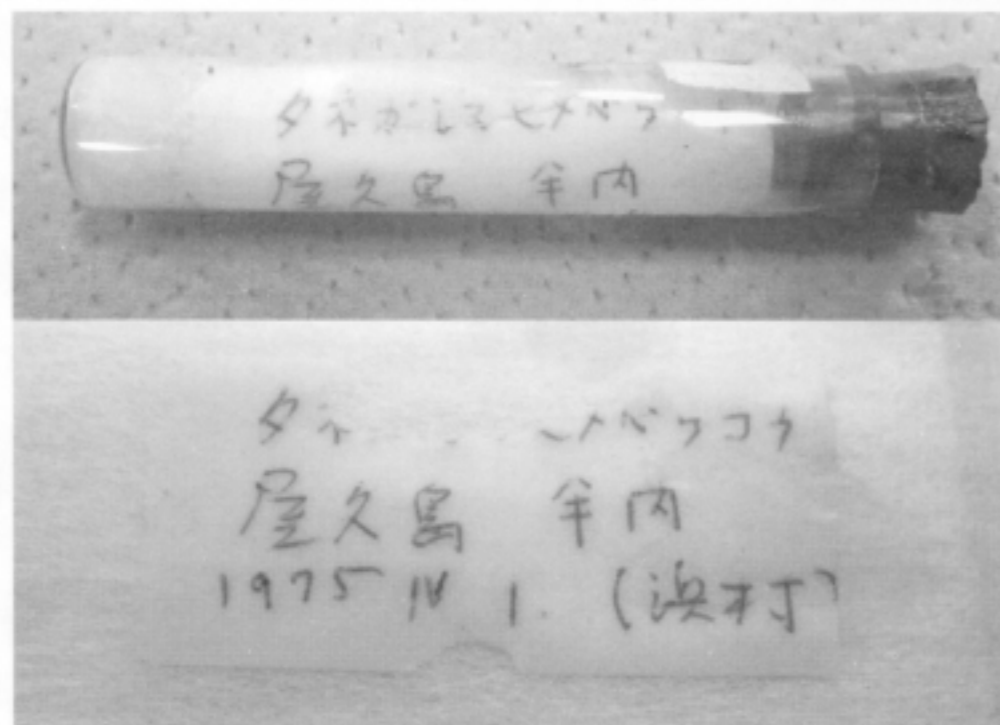 タネガシマヒメベッ
屋久島 半内
タネ メベッコウ
屋久島 半内
1975 IV 1. (浜村)